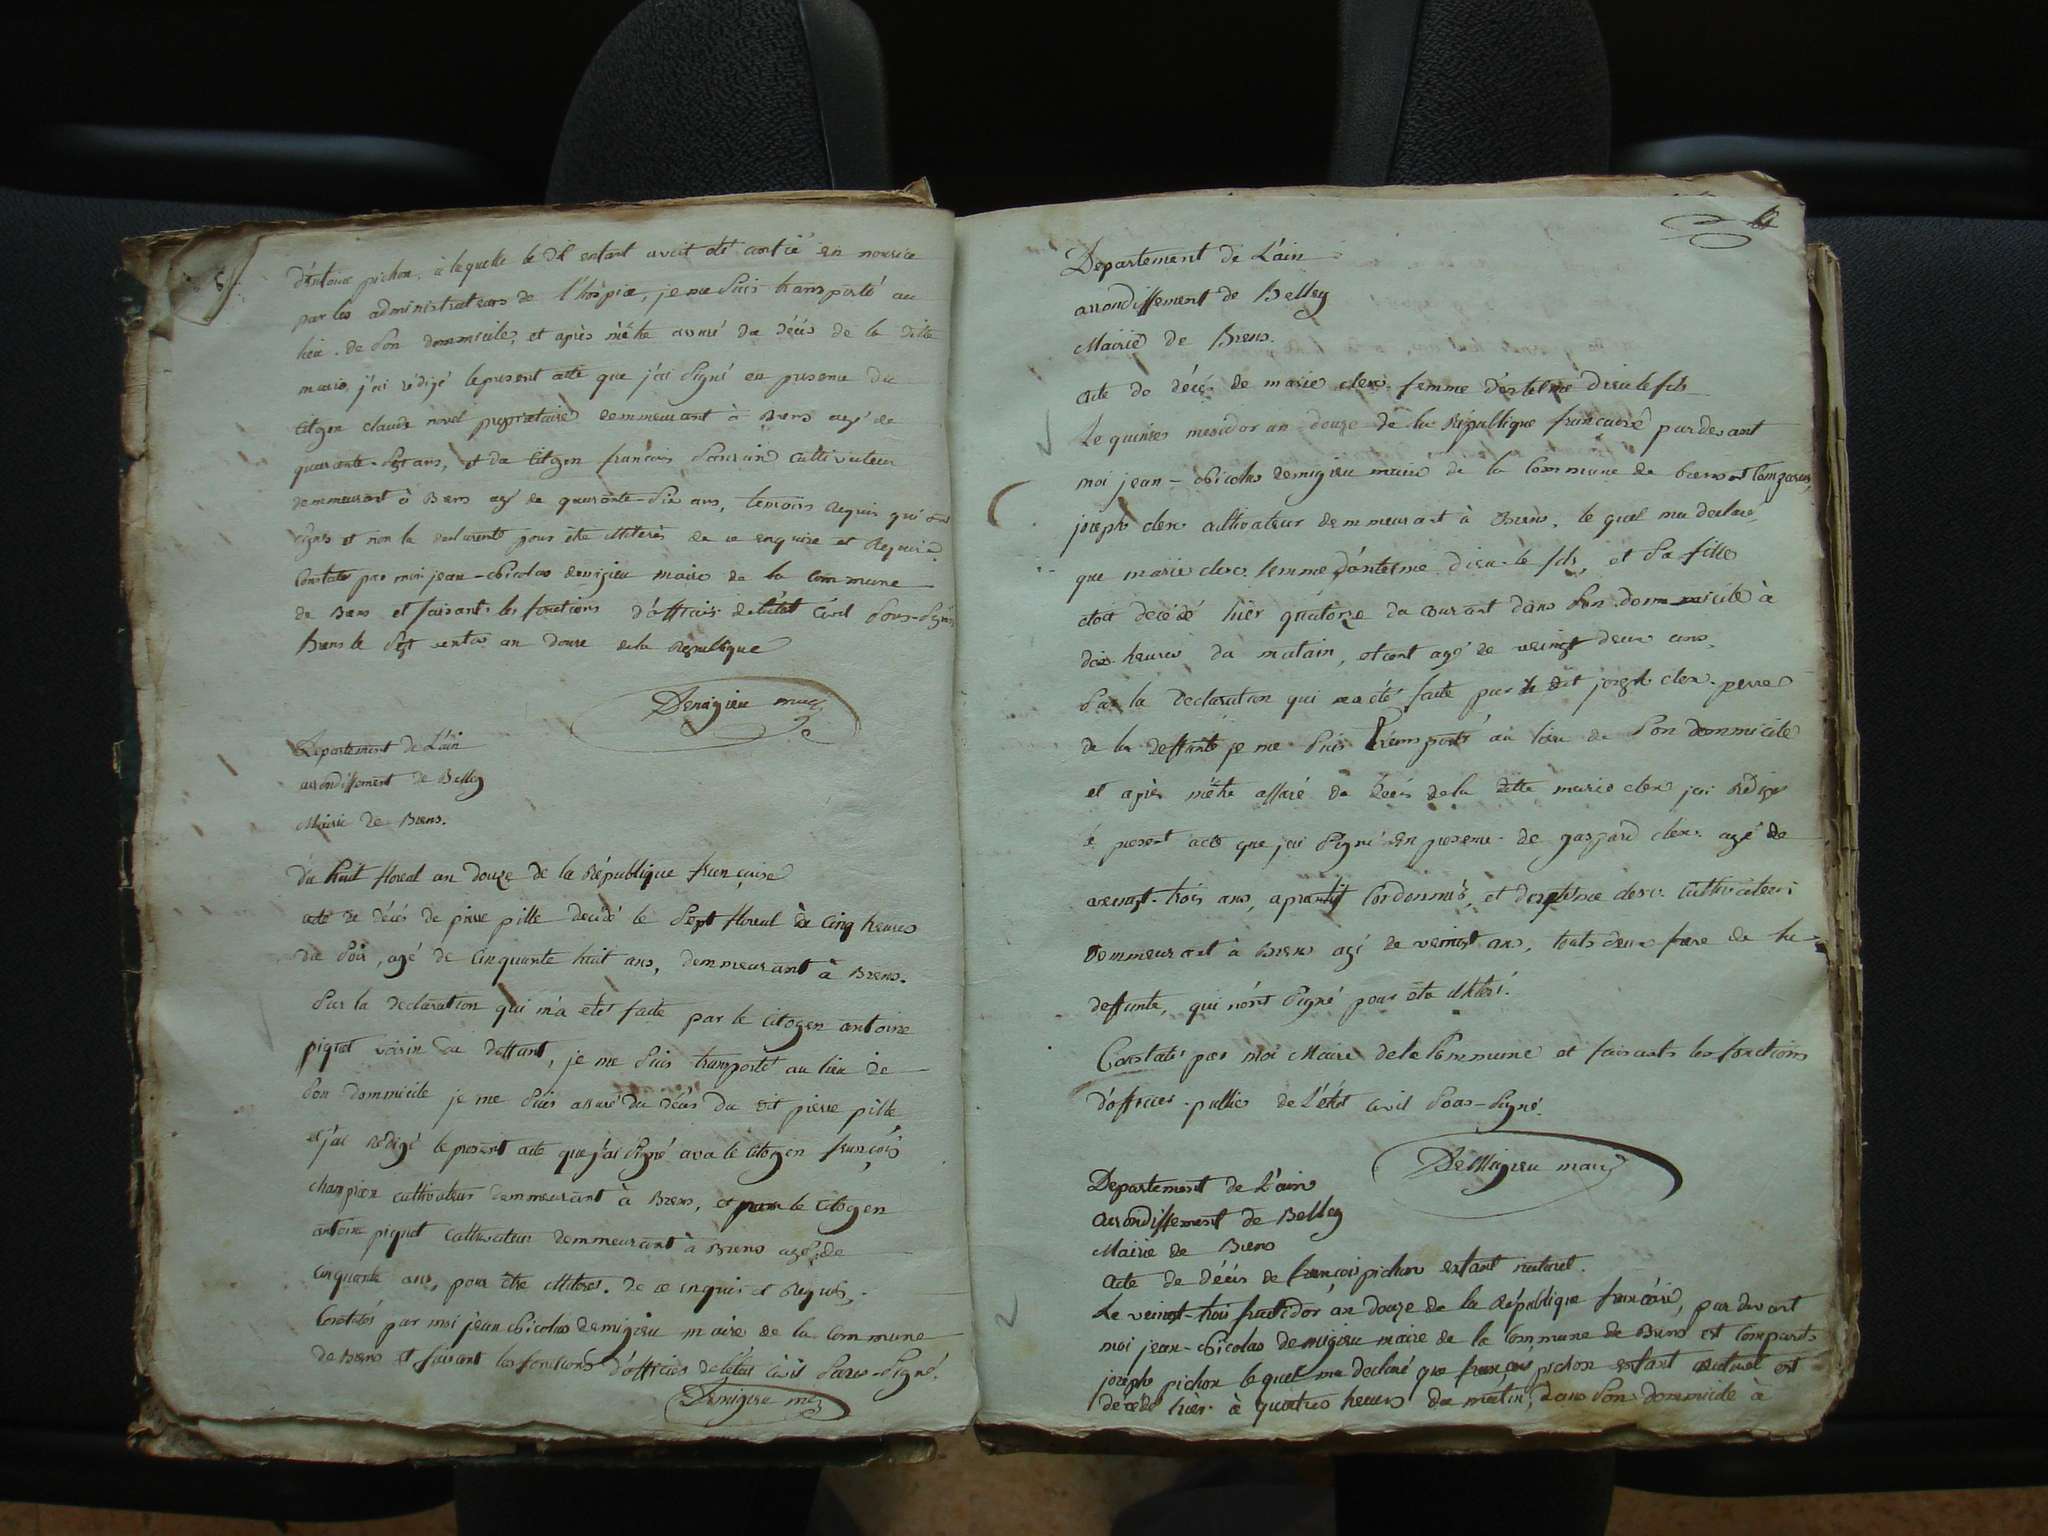 d'entoine pichon, a laquelle le dit enfant avoit eté confié en nourice
par les administrateurs de l'hospice, je me suis transporté au
lieu de son dommicile, et après m'être assuré du décès de la ditte
marie, j'ai rédigé le present acte que j'ai signé en presence du
citoyen claude novel proprietaire demmeurant à Brens agé de
quarante-sept ans, et du citoyen françois cultivateur
demmeurant à Brens agé de quarante-six ans, temoins requis qui ont
signés et non la declarante pour être illiteres de ce enquise et requise
Constaté par moi jean-Nicolas demigieu maire de la commune
de Brens et faisants les fonctions d'officier de l'état civil sous-signé
Brens le sept ventos an douze de la République
Demigieu maire
Departement de L'ain
arrondissement de Belley
Mairie de Brens.
du huit floreal an douze de la République française
acte de décés de pierre pille decédé le sept floreal à cinq heures
du soir, agé de cinquante huit ans, demmeurant à Brens.
Sur la declaration qui m'a eté faite par le citoyen antoine
piquet voisin du deffunt, je me suis transporté au lieu de
son dommicile je me suis assuré du décés du dit pierre pille
et j'ai rédigé le présent acte que j'ai signé avec le citoyen françois
champion cultivateur demmeurant à Brens, et le citoyen
antoine piquet cultivateur demmeurant à Brens agé de
cinquante ans, pour être illiteres. de ce enquis et requis.
Constatés par moi jean Nicolas demigieu maire de la commune
de Brens et faisant les fonctions d'officier de l'état civil sous-signé.
Demigieu
Departement de L'ain
arrondissement de Belley
Mairie de Brens.
acte de décés de marie clerc femme d'entelme dieu le fils
Le quinze mesidor an douze de la République francaise pardevant
moi jean-Nicolas demigieu maire de la commune de brens est comparus,
joseph clerc cultivateur demmeurant à Brens, le quel m'a declaré
que marie clerc femme d'antelme dieu le fils, et sa fille
étoit decédé hier quatorze du courant dans son dommicile à
dix heures du matain, etant agé de veingt deux ans,
Sur la declaration qui m'a été faite par le dit joseph clerc perre
de la deffunte je me suis transporté au lieu de son dommicile
et après m'être assuré du décés de la ditte marie clerc j'ai rédigé
le present acte que j'ai signé en presence de gaspard clerc agé de
veingt-trois ans, aprantif cordonnié, et d'entelme clerc cultivateur
demmeurant à Brens agé de veingt ans, touts deux frere de la
deffunte, qui n'ont signé pour être illiteré.
Constaté par moi Maire de la commune et faisants les fonctions
d'officier public de L'état civil sous-signé.
DeMigieu maire
Departement de L'ain
arrondissement de Belley
Mairie de Brens
acte de décés de francois pichon enfant naturel.
Le veingt-trois fructidor an douze de la République francaise, par devant
moi jean-Nicolas demigieu maire de la commune de Brens est comparus
joseph pichon le quel m'a declaré que françois pichon enfant naturel est
decédé hier à quatres heures du matin, dans son dommicile à